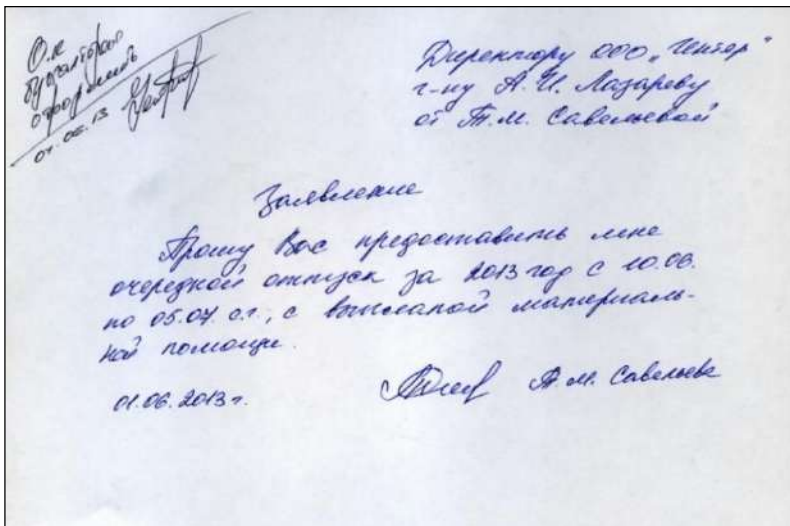 О.к
бухгалтерия
оформить
01.06.13
Директору ООО „Центер"
г-ну А.И. Лазареву
от Т.М. Савельевой
Заявление
Прошу Вас предоставить мне
очередной отпуск за 2013 год с 10.06.
по 05.07. с.г., с выплатой материаль-
ной помощи.
01.06.2013 г.
Т.М. Савельева